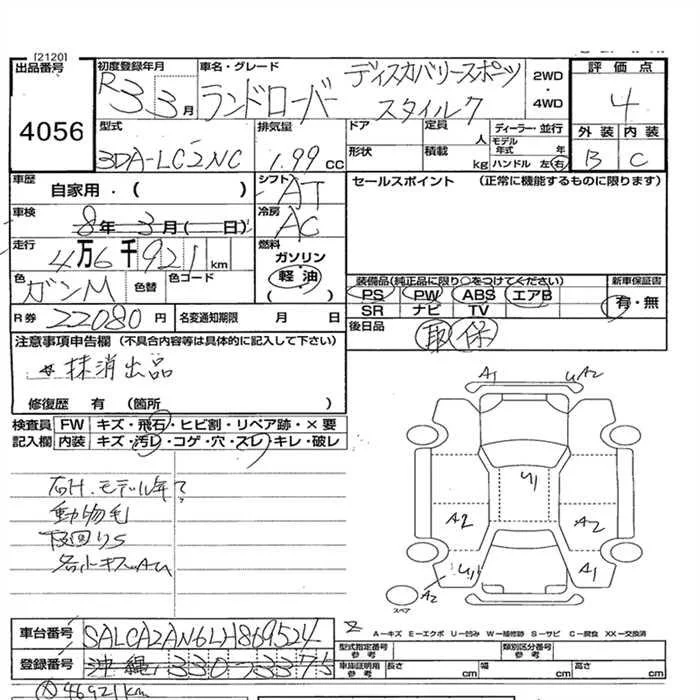 [2120]
出品番号
4056
初度登録年月
R3 3月
車名・グレード
ランドローバー ディスカバリースポーツ
スタイル7
2WD
・
4WD
評価点
4
外装 内装
B C
型式
3DA-LC2NC
排気量
1.99 CC
ドア
定員 人
形状
積載 kg
ディーラー・並行
モデル年式 年
ハンドル 左・右
車歴
自家用・( )
シフト
AT
セールスポイント (正常に機能するものに限ります)
車検
8年 3月( 日)
冷房
AC
走行
4万6千921 km
燃料
ガソリン
軽油
( )
色
ガンM
色替
色コード
装備品(純正品に限り○をつけてください)
PS PW ABS エアB
SR ナビ TV
新車保証書
有・無
R券 22080円
名変通知期限 月 日
後日品
取 保
注意事項申告欄 (不具合内容等は具体的に記入して下さい)
抹消出品
修復歴 有 (箇所 )
検査員
記入欄
FW キズ・飛石・ヒビ割・リペア跡・×要
内装 キズ・汚レ・コゲ・穴・スレ・キレ・破レ
右H.モデル年?
動物毛
下回りS
各小キズAU
A1
UA2
U1
A2
A2
U1
A1
A2
スペア
車台番号 SALCA2AN6LH869524
A−キズ E−エクボ U−凹み W−補修跡 S−サビ C−腐食 XX−交換済
登録番号 沖縄 330 3375
型式指定番号
類別区分番号
車庫証明用
参考
長さ cm
幅 cm
高さ cm
46921km